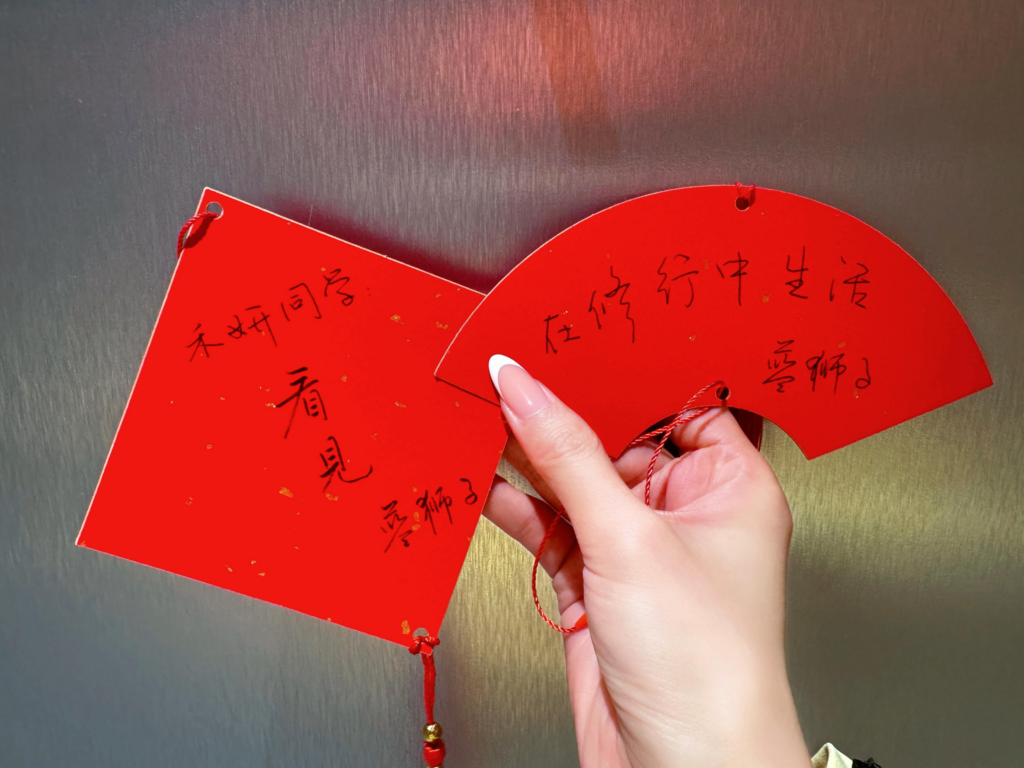 禾妍同学
看
見
蓝狮子
在修行中生活
蓝狮子